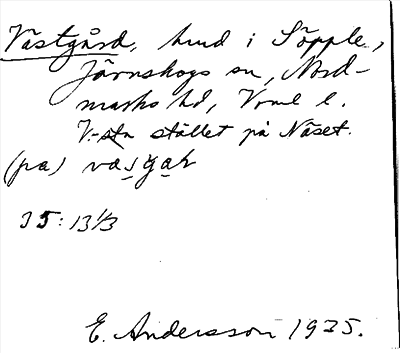 Västgård, hmd i Söpple,
Järnskogs sn, Nord-
marks hd, Vrml l.
V.-sta stället på Näset.
(pa)
35: 13 1/3
E. Andersson 1935.